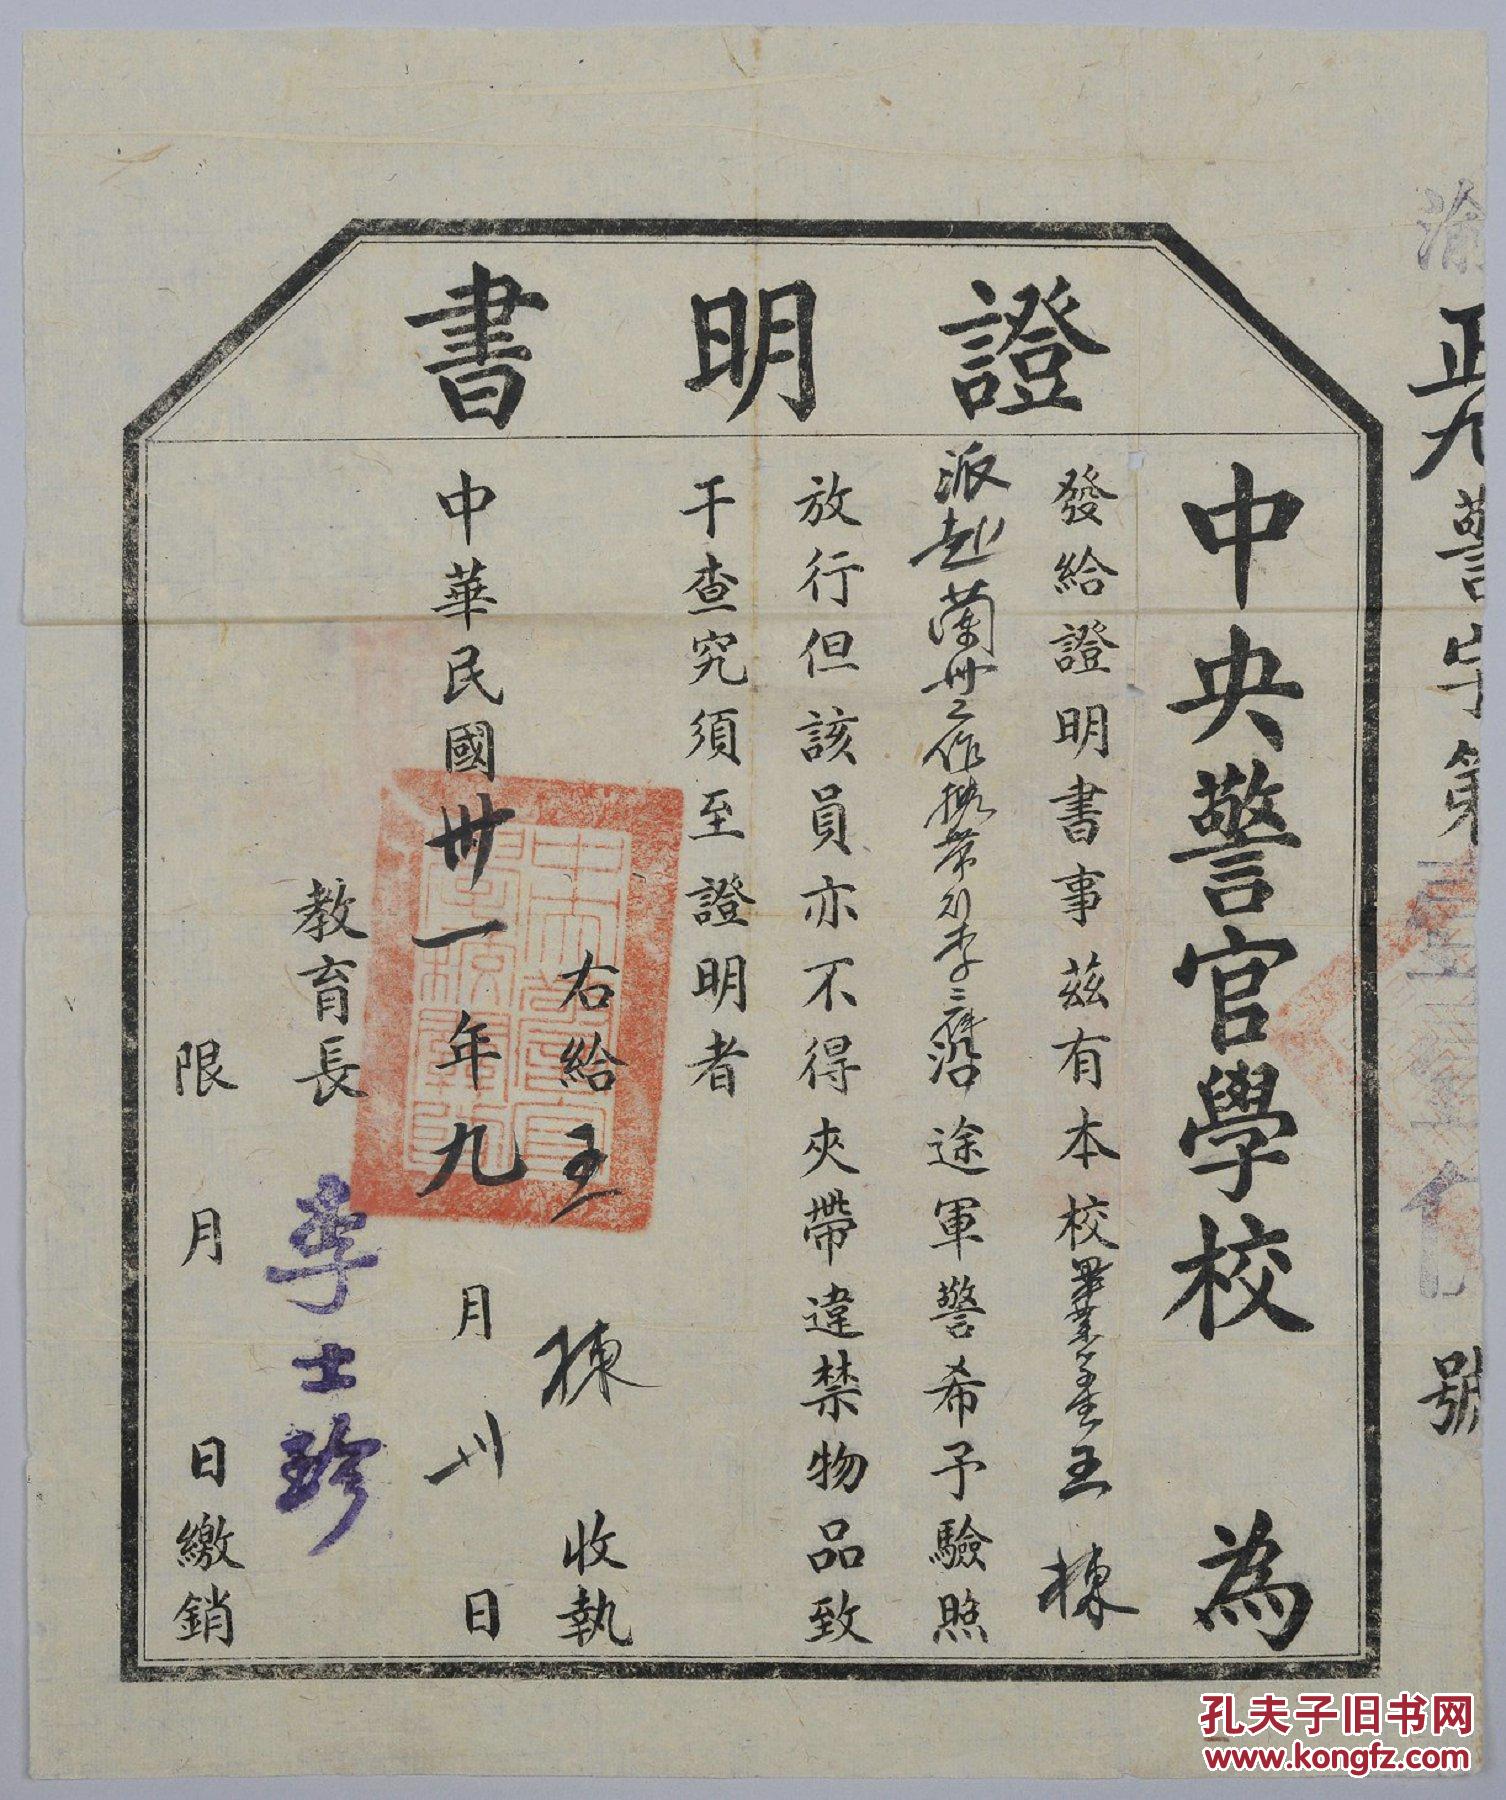 證明書
中央警官學校為
發給證明書事茲有本校畢業學生王棟
派赴蘭州工作攜帶行李二件沿途軍警希予驗照
放行但該員亦不得夾帶違禁物品致
干查究須至證明者
右給王棟收執
中華民國卅一年九月卅日
教育長李士珍
限月日繳銷
警字第
號
孔夫子旧书网
www.kongfz.com